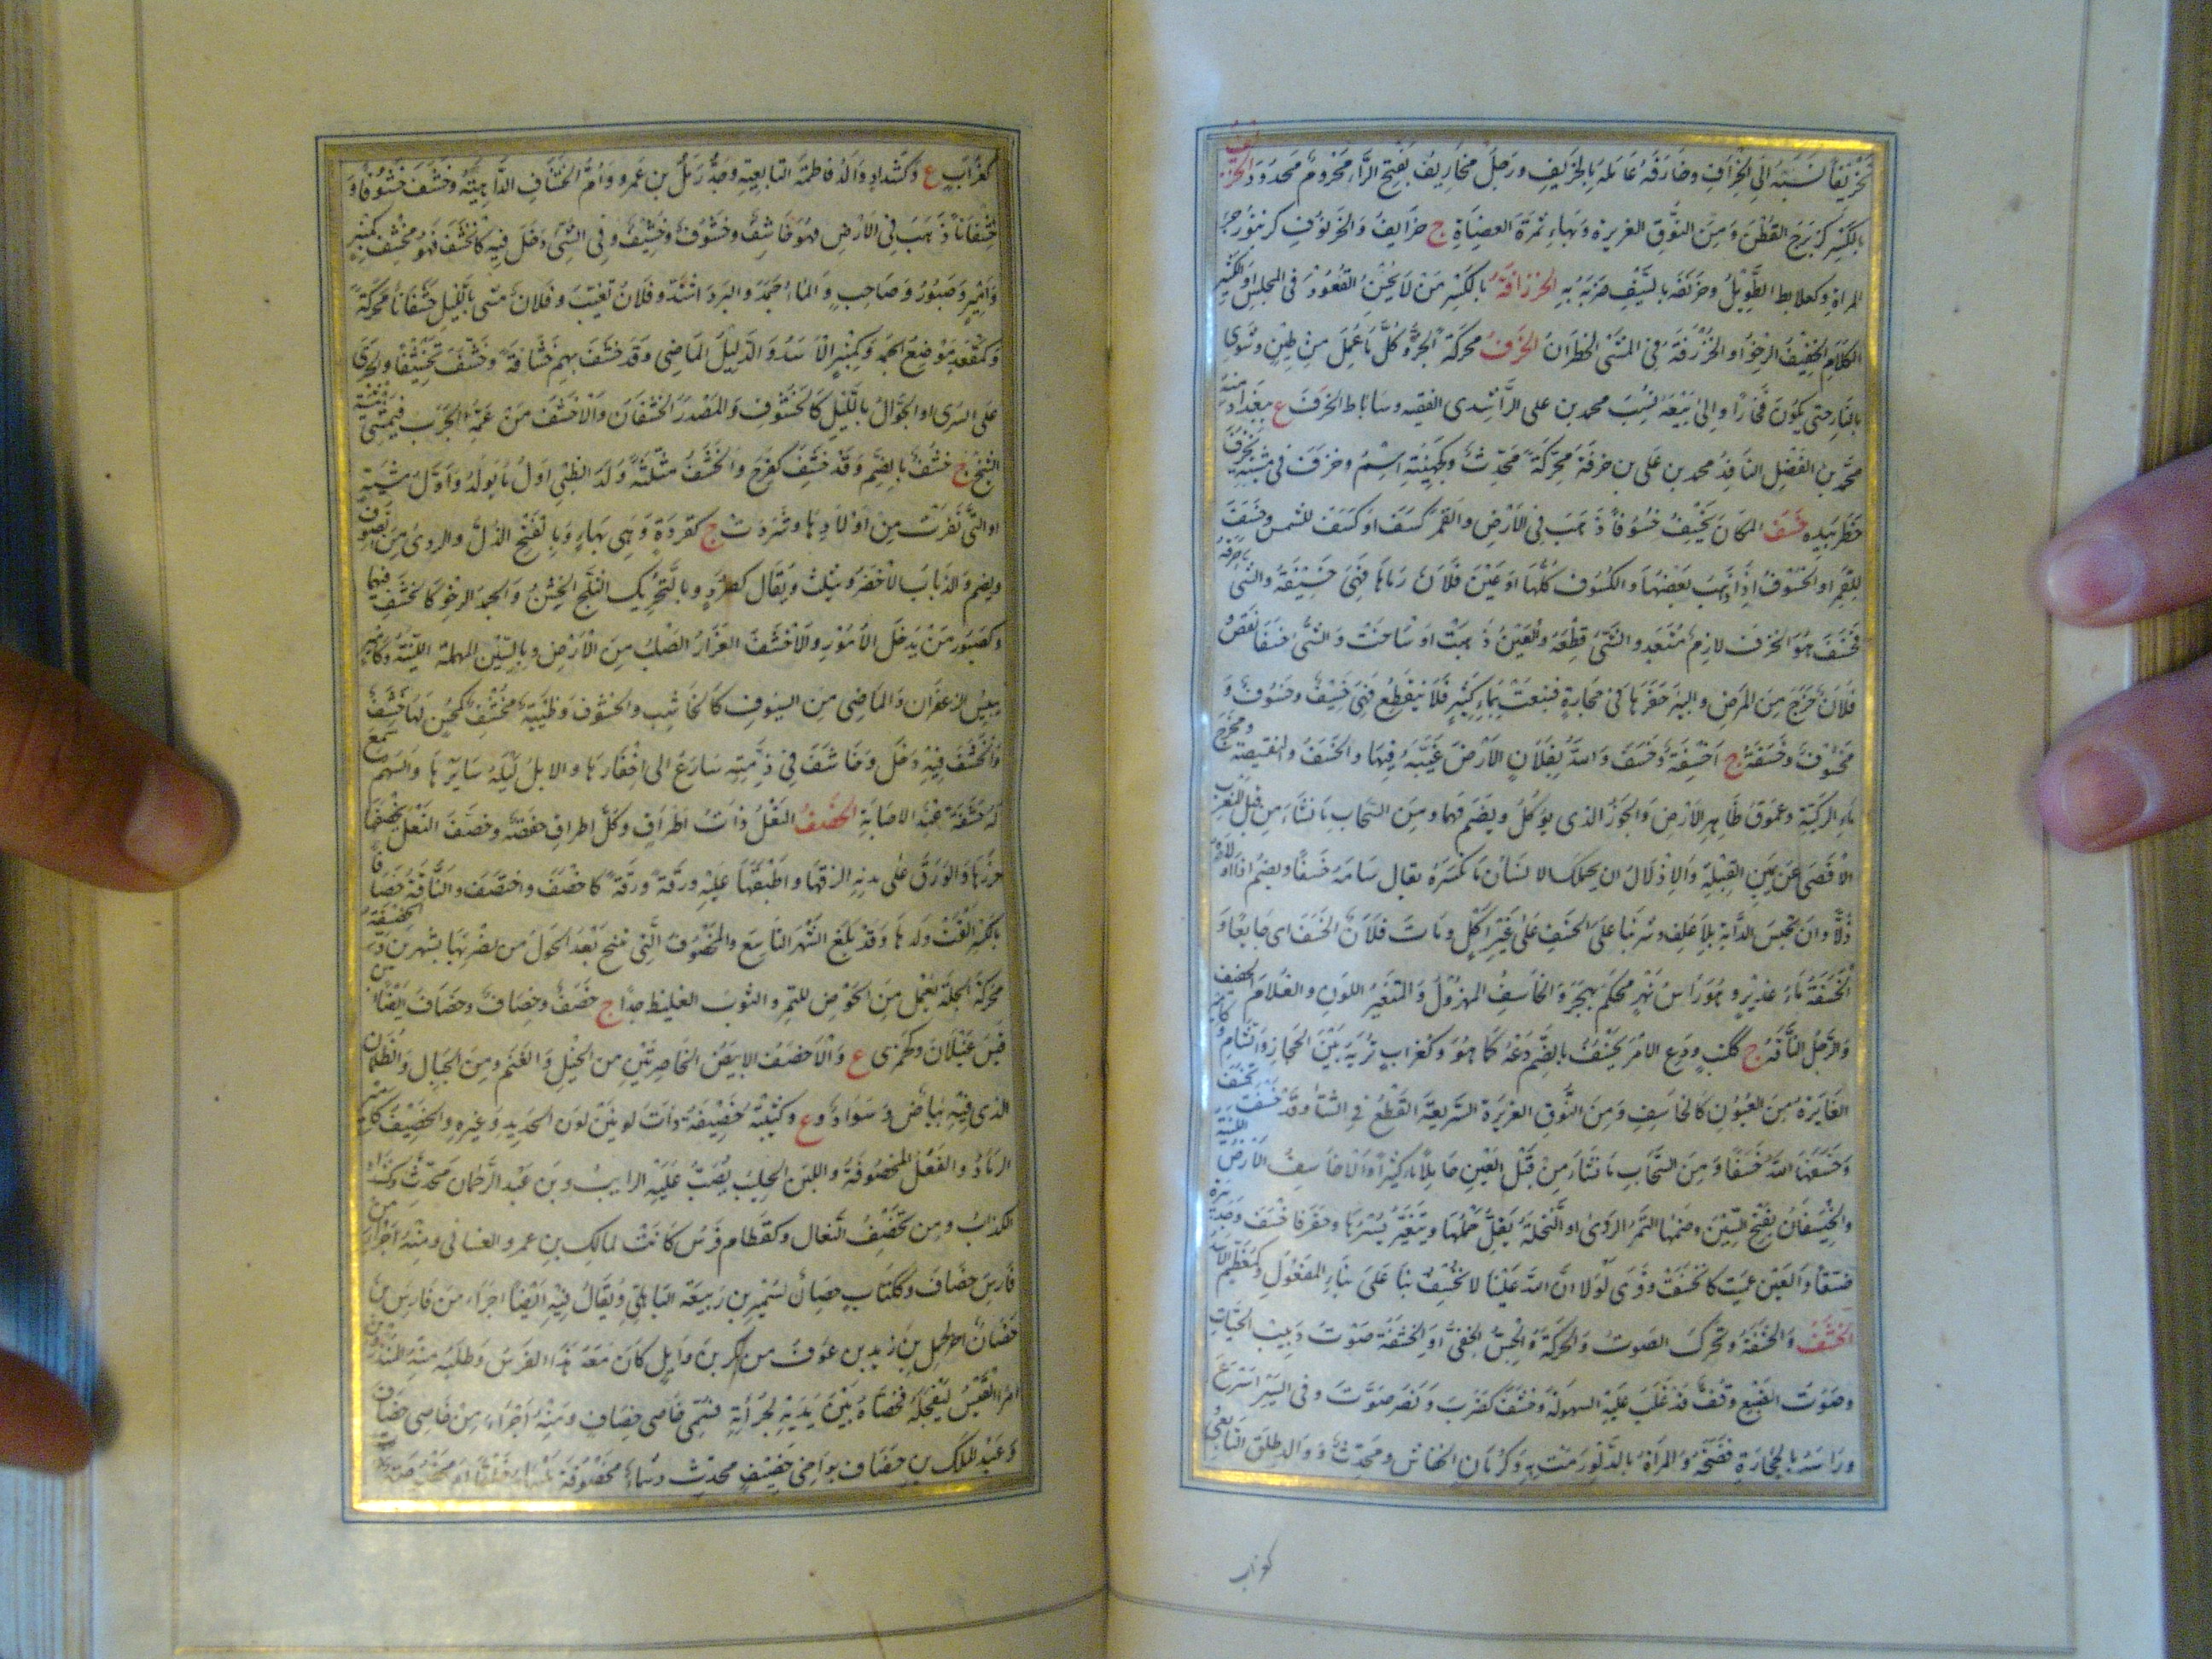 تخريفا نسبه الى الخرف وخارفه عامله بالخريف ورجل مخارف بفتح الراء محروم محدود الخرنف
بالكسر كزبرج القطن ومن النوق الغزيرة وبهاء ثمرة العضاه ج خرانف والخرنوف كزنبور حر
المراة وكعلابط الطويل وخرنفه بالسيف ضربه به الخزرافة بالكسر من لا يحسن القعود فى المجلس او الكثير
الكلام الخفيف الرخو او الخزرفة فى المشى الخطران الخزف محركة الجر وكل ما عمل من طين وشوى
بالنار حتى يكون فخارا والى بيعه نسب محمد بن على الراشدى الفقيه وساباط الخزف ع ببغداد منه
محمد بن الفضل الناقد محمد بن على بن خزفة محركة محدث وكجهينة اسم وخزف فى مشيه يخزف
خطر بيده خسف المكان يخسف خسوفا ذهب فى الارض والقمر كسف او كسف للشمس وخسف
للقمر او الخسوف اذا ذهب بعضها والكسوف كلها او عين فلان فقأها فهى خسيفة والشى خرقه
فخسف هو الخرق لازم متعد والشى قطعه والعين ذهبت او ساخت والشى خسفا نقص
فلان خرج من المرض والبئر حفرها فى حجارة فنبعت بماء كثير فلا ينقطع فهى خسيف وخسوف و
مخسوفة وخسيفة ج اخسفة وخسف والله بفلان الارض غيبه فيها والخسف والنقيصة ومخرج
ماء الركية وعموق ظاهر الارض والجوز الذى يوكل ويضم فيهما ومن السحاب ما نشأ من قبل المغرب
الاقصى عن يمين القبلة والاذلال ان يحملك الانسان ما تكره يقال سامه خسفا ويضم اذا اولاه
ذلا وان تحبس الدابة بلا علف وشربنا على الخسف على غير اكل وبات فلان الخسف اى جايعا و
الخسفة ماء غزير وهو رأس نهر محلم بهجر والخاسف المهزول والمتغير اللون والغلام الخفيف
والرجل الناقه ج ككتب ودع الامر يخسف بالضم دعه كما هو وكغراب برية بين الحجاز والشام
الغايرة من العيون كالخاسف ومن النوق الغزيرة السريعة القطع فى الشتا وقد خسفت تخسف
وخسفها الله خسفا ومن السحاب ما نشأ من قبل العين حاملا ماء كثيرا والاخاسيف الارض اللينة
والخيسفان بفتح السين وضمها التمر الردى او النخلة يقل حملها ويتغير بسرها وحفر فاخسف وجد بئره
خسفا والعين عميت كانخسفت وقرى لولا ان من الله علينا لانخسف بنا على بناء المفعول وكمعظم الاسد
الخشف والخشفة وتحرك الصوت والحركة والحس الخفى او الخشفة صوت دبيب الحيات
وصوت الضبع وقف قد غلب عليه السهولة وخشف كضرب ونصر صوت وفى السير اسرع
وراسه بالحجارة فضخه والمراة بالولد رمت به وكرمان الخفاش ومحدث ووالد طلق التابعى
كغراب
كغراب ع وكشداد والد فاطمة التابعية وجد زمل بن عمرو وام الخشاف الداهية وخشف خشوفا و
خشفانا ذهب فى الارض فهو خاشف وخشوف وخشيف وفى الشى دخل فيه كانخشف فهو مخشف كمنبر
وامير وصبور وصاحب والماء جمد والبرد اشتد وفلان تغيب وفلان مشى بالليل خشفانا محركة
وكمقعد موضع الجمد وكمنبر الاسد والدليل الماضى وقد خشف بهم خشافة وخشف تخشيفا والجرى
على السرى او الجوال بالليل كالخشوف والمصدر الخشفان والاخشف من عمه الجرب فيمشى مشية
الشيخ ج خشف بالضم وقد خشف كفرح والخشف مثلثة ولد الظبى اول ما يولد واول مشيه
او التى نفرت من اولادها وتشردت ج كقردة وهى بهاء وبالفتح الذل والردى من الصوف
ويضم والذباب الاخضر ويثلث ويقال كصرد وبالتحريك الثلج الخشن والجمد الرخو كالخشف فيهما
وكصبور من يدخل الامور والاخشف العزاز الصلب من الارض وبالسين المهملة اللينة وكامير
يبيس الزعفران والماضى من السيوف كالخاشف والخشوف وظبية مخشف كمحسن لها خشف
وانخشف فيه دخل وخاشف فى ذمته سارع الى اخفارها والابل ليلته سايرها والسهم سمع
له خشفة عند الاصابة الخصف النعل ذات اطراق وكل اطراق خصفة وخصف النعل يخصفها
خرزها والورق على بدنه الزقها واطبقها عليه ورقة ورقة كاخصف واختصف والناقة خصافا
بالكسر القت ولدها وقد بلغ الشهر التاسع والخصوف التى تنتج بعد الحول من مضربها بشهرين والخصفة
محركة الجلة تعمل من الخوص للتمر والثوب الغليظ جدا ج خصف وخصاف وخصاف ايضا بن
قيس عيلان وكجمزى ع والاخصف الابيض الخاصرتين من الخيل والغنم ومن الجبال والظلمان
الذى فيه بياض وسواد وع وكتيبة خصيفة ذات لونين لون الحديد وغيره والخصيف كامير
الرماد والنعل المخصوفة واللبن الحليب يصب عليه الرايب وبن عبد الرحمان محدث وكشداد
الكذاب ومن يخصف النعال وكقطام فرس كانت لمالك بن عمرو الغسانى ومنه اجرا من
فارس خصاف وككتاب حصان لسمير بن ربيعة الباهلى ويقال فيه ايضا اجراء من فارس
خصاف اخر لحمل بن زيد بن عوف من بكر بن وايل كان معه هذا الفرس وطلبه منه المنذر بن
امرا القيس ليفتحله فخصاه بين يديه لجرأته فسمى خاصى خصاف ومنه اجراء من خاصى خصاف
وعبد الملك بن خصاف بن اخى خصيف محدث وسماء مخصوفة ملساء خلقاء او مخصوفة